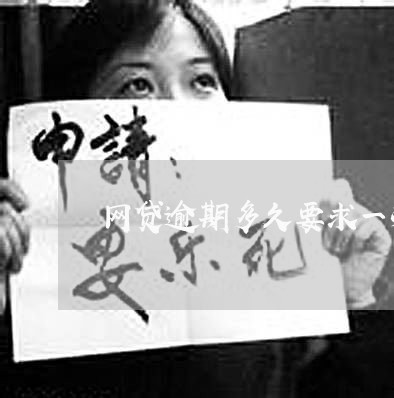 申請：
网贷逾期多久要求一
安乐死